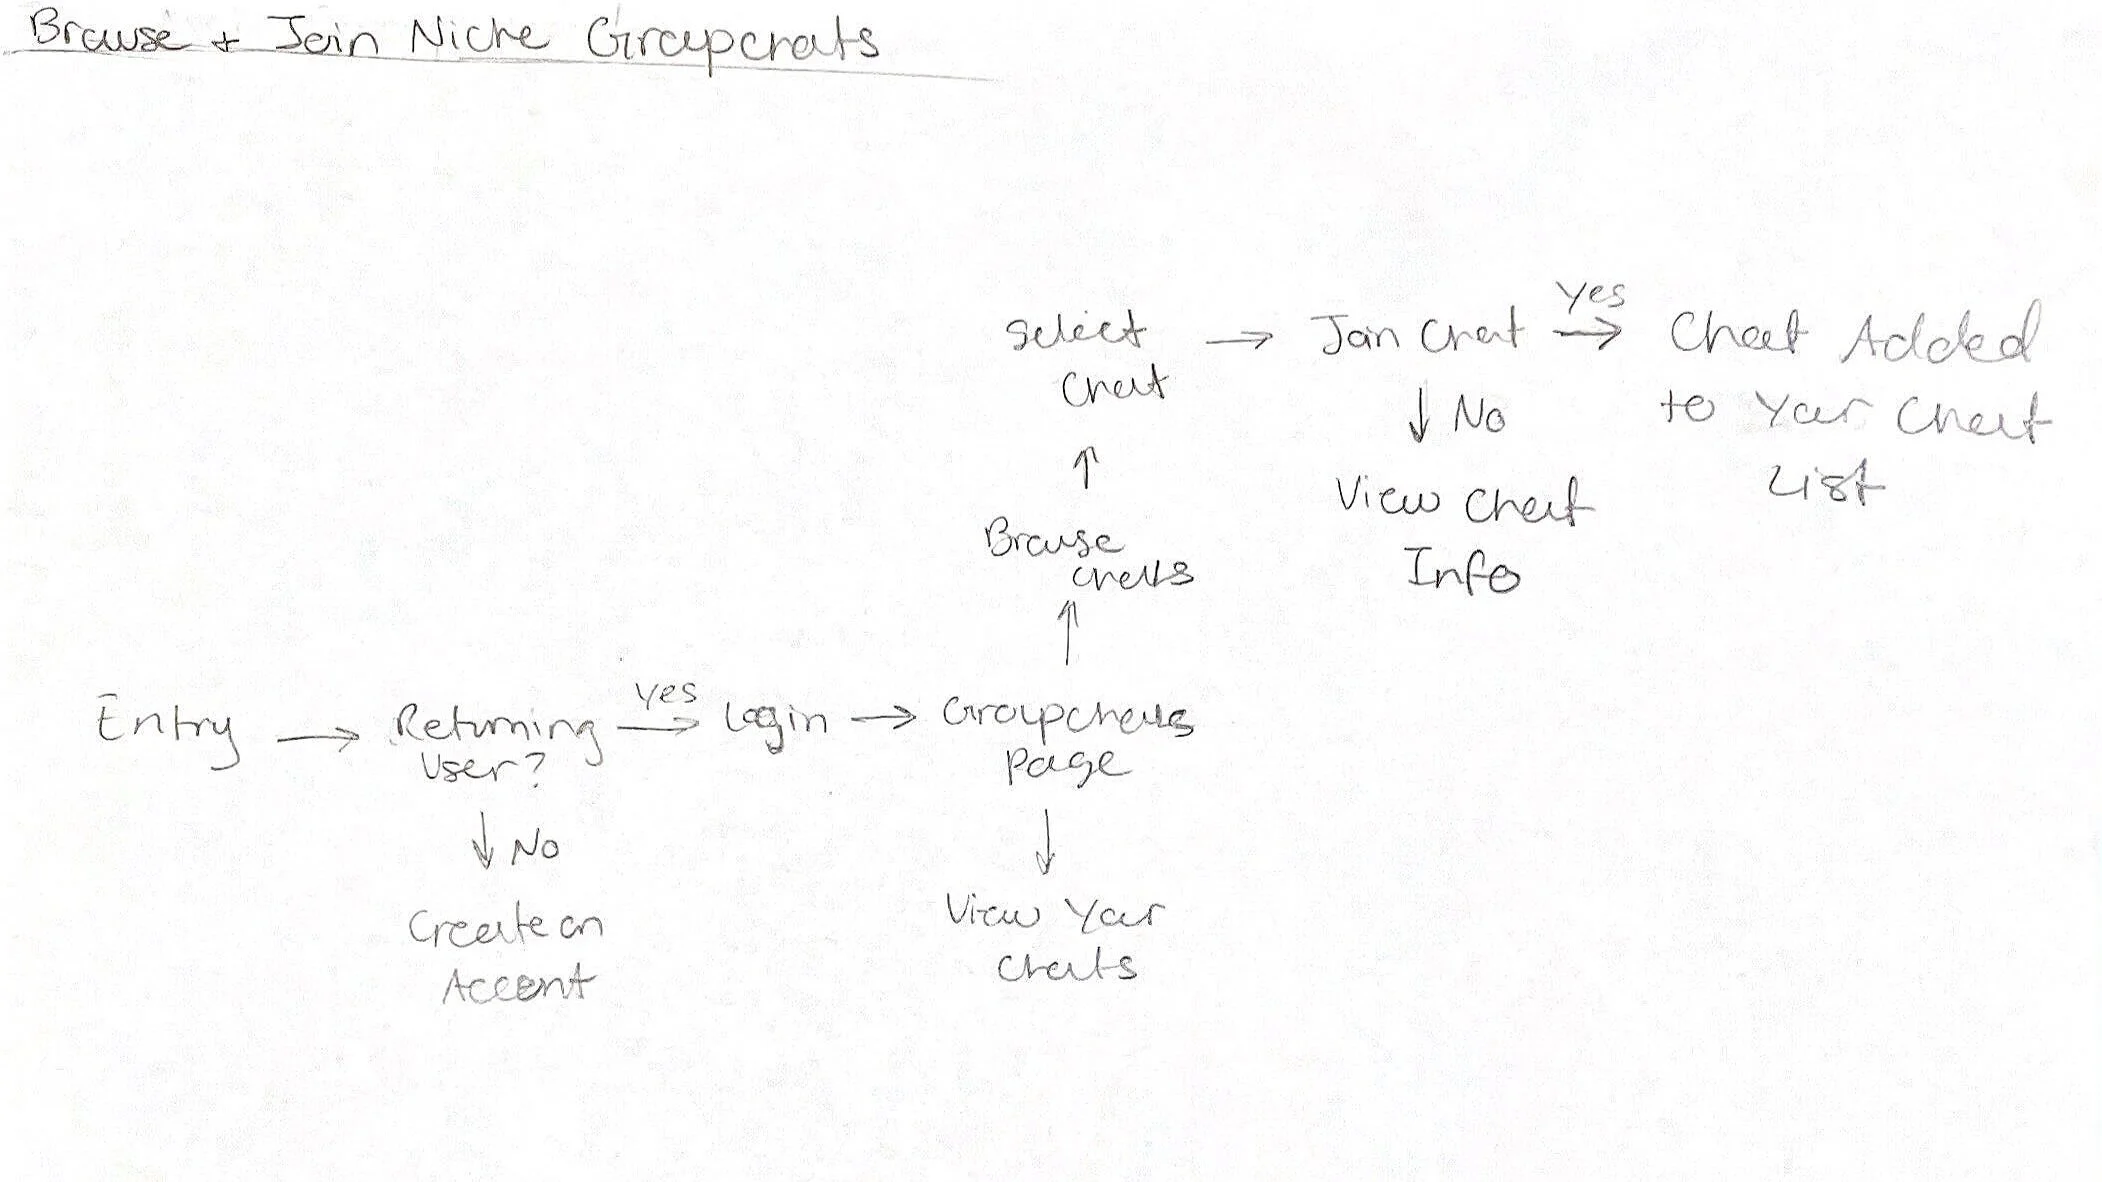 Browse + Join Niche Groupchats
Yes
Select → Join Chat → Chat Added
Chat
↓ No
to Your Chat
↑
View Chat
List
Browse
Chats
Info
↑
Yes
Entry → Returning → Login → Groupchats
User?
Page
↓ No
↓
Create an
View Your
Account
Chats